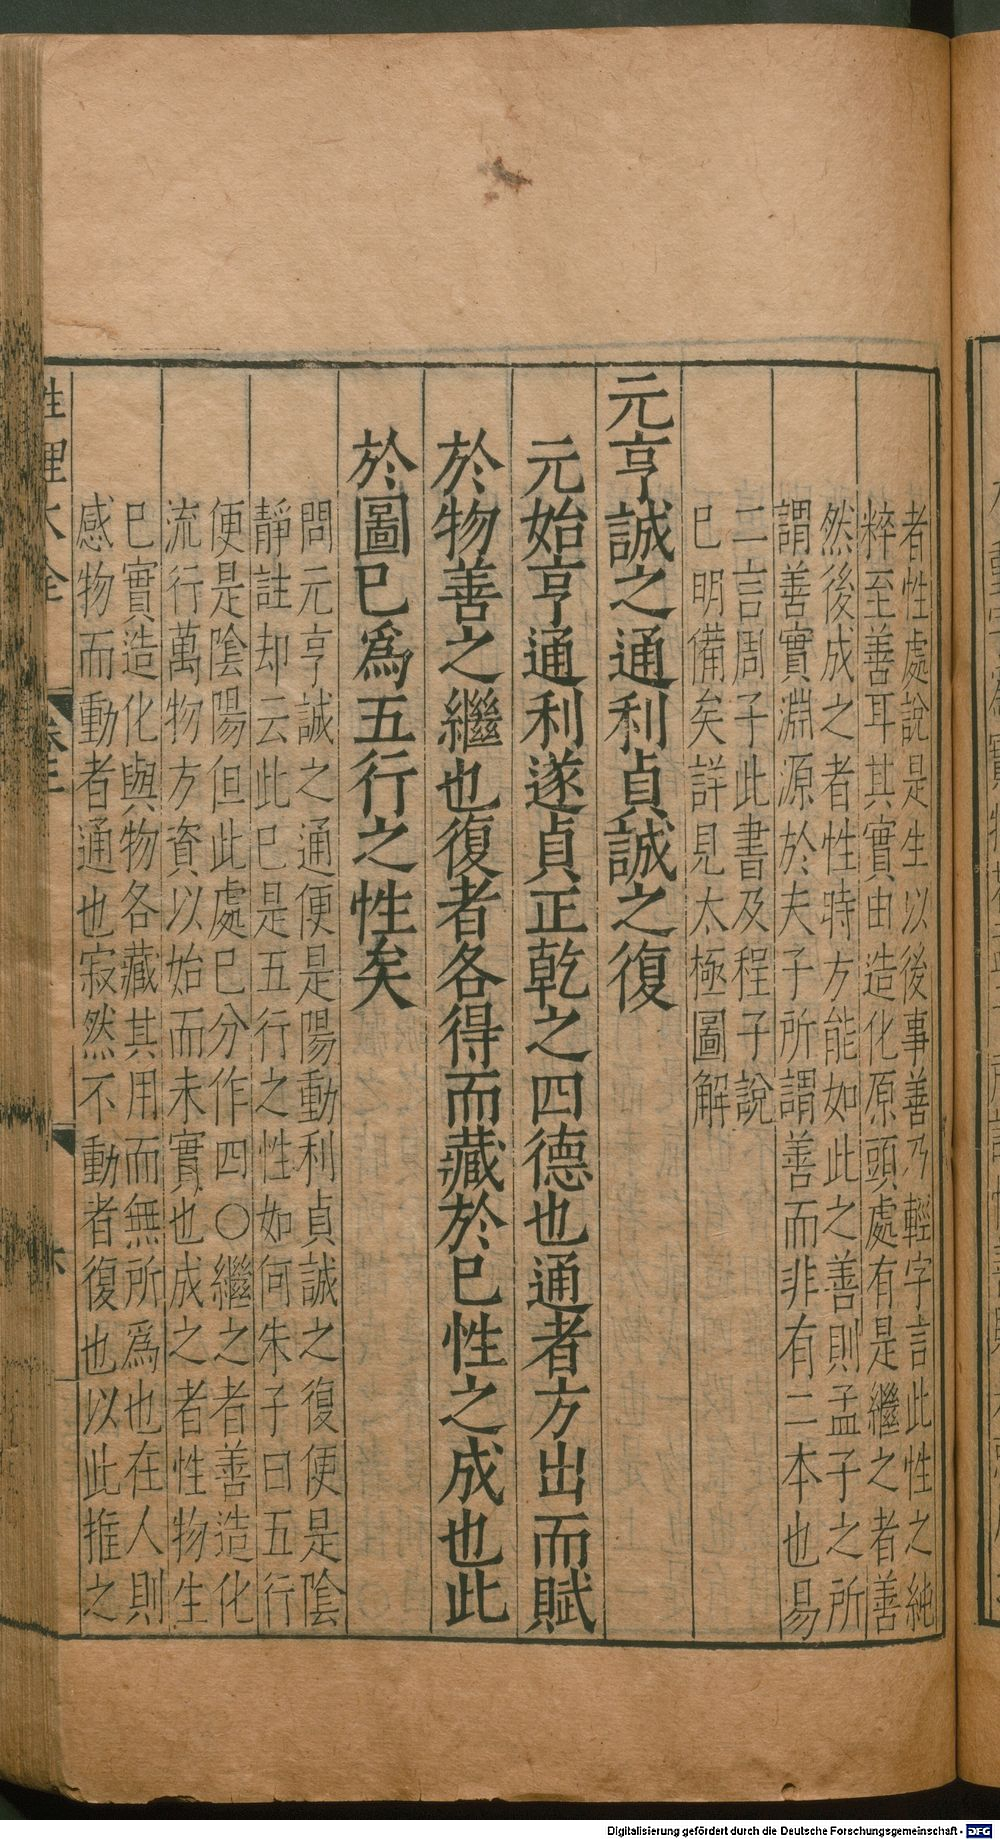 者性處說是生以後事善乃輕字言此性之純
粹至善耳其實由造化原頭處有是繼之者善
然後成之者性時方能如此之善則孟子之所
謂善實淵源於夫子所謂善而非有二本也易
二言周子此書及程子說
已明備矣詳見太極圖解
元亨誠之通利貞誠之復
元始亨通利遂貞正乾之四德也通者方出而賦
於物善之繼也復者各得而藏於已性之成也此
於圖已爲五行之性矣
問元亨誠之通便是陽動利貞誠之復便是陰
靜註却云此已是五行之性如何朱子曰五行
便是陰陽但此處已分作四○繼之者善造化
流行萬物方資以始而未實也成之者性物生
已實造化與物各藏其用而無所爲也在人則
感物而動者通也寂然不動者復也以此推之
性理大全
卷三
Digitalisierung gefördert durch die Deutsche Forschungsgemeinschaft - DFG